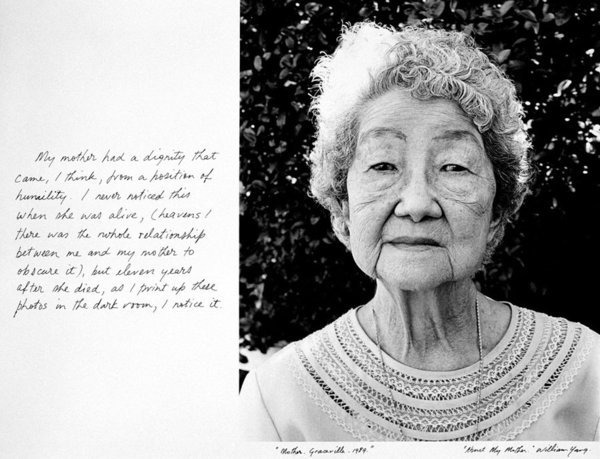 My mother had a dignity that
came, I think, from a position of
humility. I never noticed this
when she was alive, (heavens!
there was the whole relationship
between me and my mother to
obscure it), but eleven years
after she died, as I print up these
photos in the dark room, I notice it.
"Mother. Graceville. 1989." "About My Mother." William Yang.